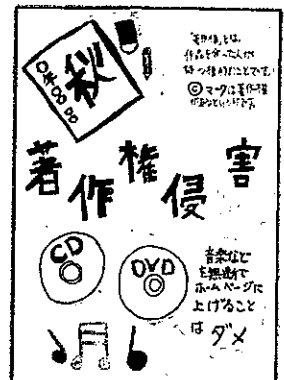 秋
「著作権」とは、
作品を作った人が
持つ権利のことです。
Ⓒマークは著作権
があるというしるしです。
著作権侵害
CD
DVD
音楽など
を無断で
ホームページに
上げること
は ダメ